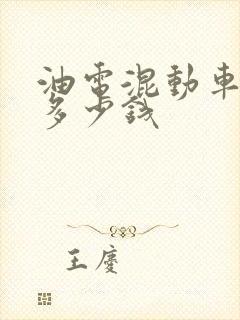 油電混動車
多少錢
王慶